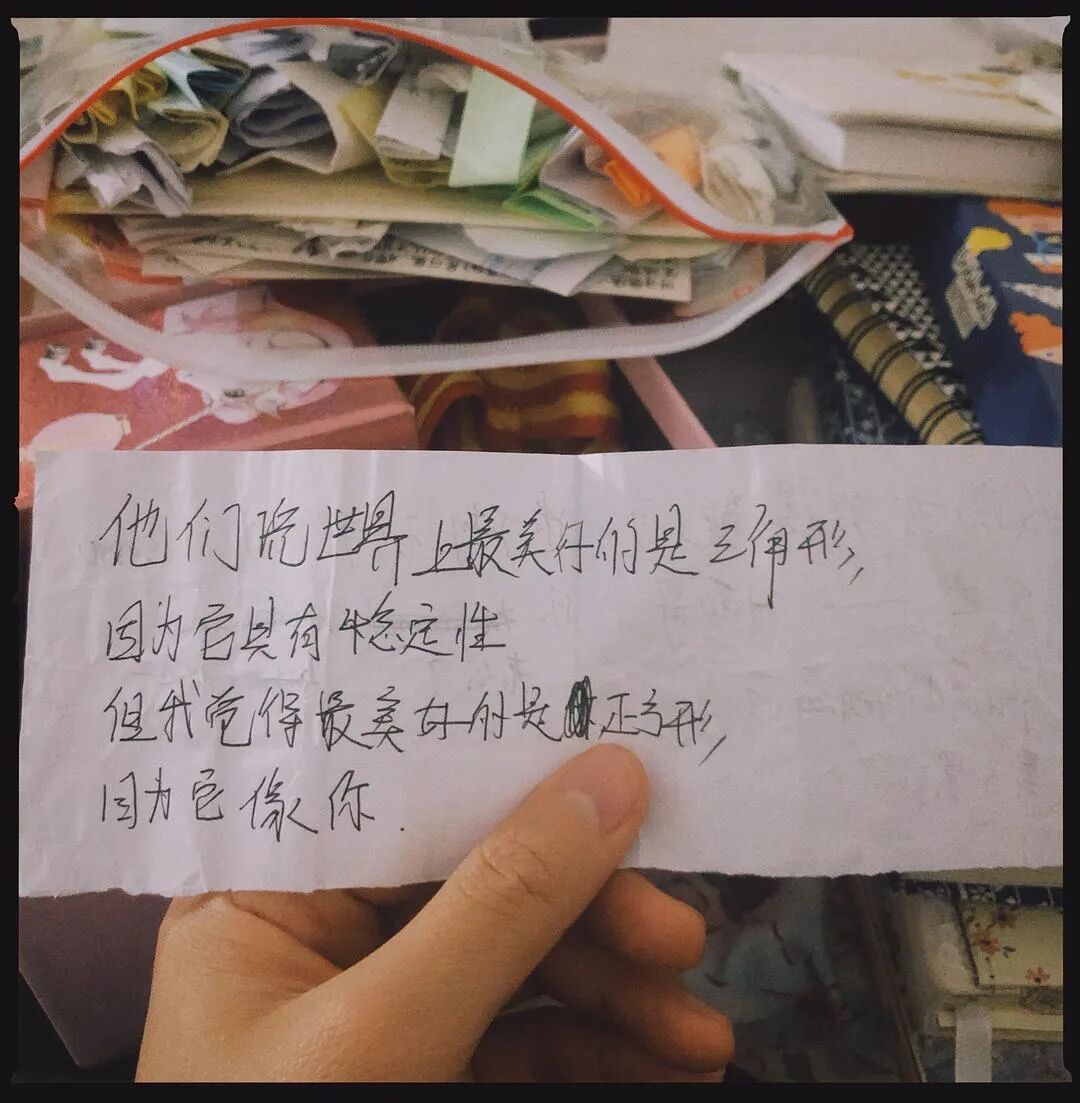 他们说世界上最美好的是三角形,
因为它具有稳定性
但我觉得最美好的是正方形,
因为它像你.